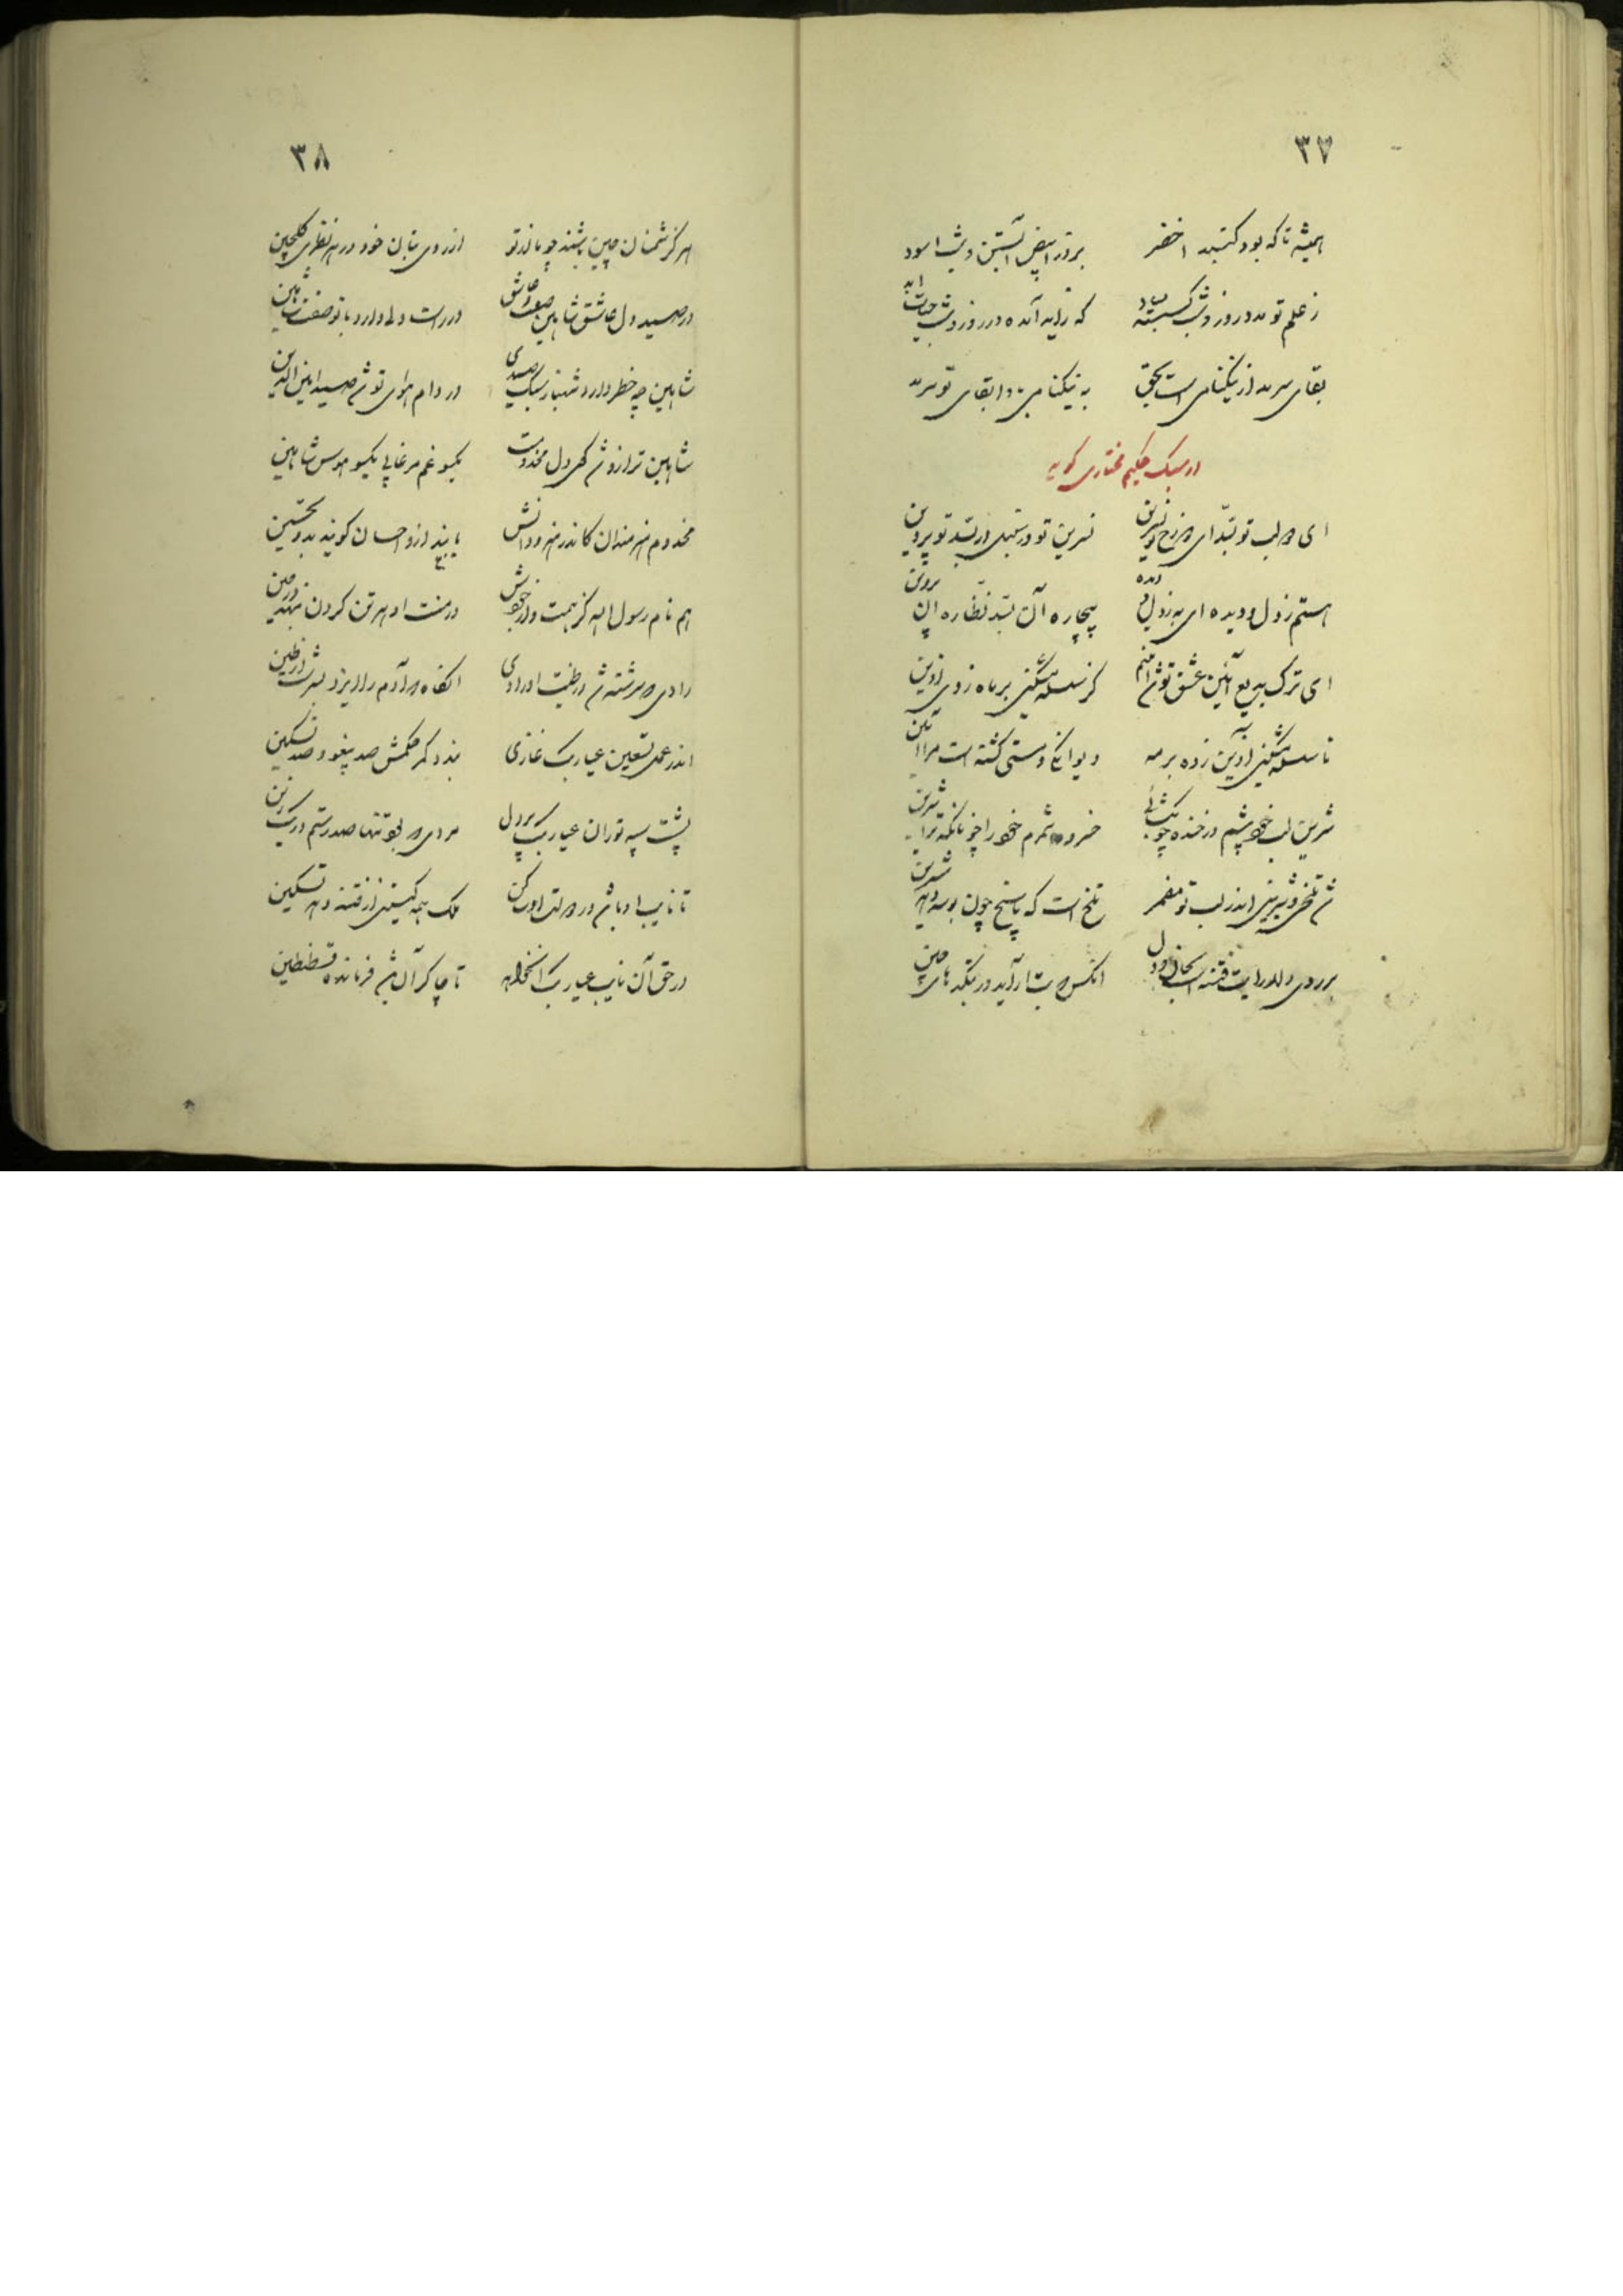 ۳۷
همیشه تا که بود کنبد اخضر بروز ابیض آبستن و شب اسود
ز علم تو مدد روز و شب کسسته مباد که زاید آمده در روز و شب حیات ابد
بقای سرمد از نیکنامی است بحق به نیکنامی ابقای تو سرمد
در سبک حکیم مختاری کوید
ای در لب تو بسّد ای در رخ تو نسرین نسرین تو در سنبل در بسّد تو پروین
هستم ز دل و دیده ای بر زده بیچاره آن بسّد نظاره این پروین
ای ترک بدیع آئین عشق تو شد آئینم کز سلسله مشکین بر ماه زدی آذین
تا سلسله مشکین آذین زده بر مه دیوانکی و مستی کشته است مرا آئین
شیرین لب خود بینم در خنده چو بکشائی خسرو شمرم خود را چونانکه ترا شیرین
شد تلخی و شیرینی اندر لب تو مضمر تلخ است که پاسخ چون بوسه دهد شیرین
بر روی دلارایت فتنه است آنکس بتکدهای چین
۳۸
هرکز شمنان چین باشند چو ماند تو از روی بتان خود در هر نظری کلچین
در صید دل عاشق شاهین صفتی دارد با تو صفت شاهین
شاهین چه خطر دارد شهباز سبک صیدی در دام هوای تو شد صید امین الدین
شاهین ترازو شد کلک و دل مخدومت یکسو غم مرغابی یکسو هوس شاهین
مخدوم هنرمندان کاندر هنر و دانش یابند ازو احسان کویند بدو تحسین
هم نام رسول اله کز همت والا در منت او هر تن کردن نهد
رادی در سرشته شد در طینت او رادی انکاه در آدم را ایزد بسرشت از طین
اندر عمل تعیین عیار بک غازی بندد کمر حکمش صد پیغو و صد تسکین
پشت سپه توران عیار بک پردل مردی در بود تنها صد رستم در یک زین
تا نایب او باشد در دولت او ملک همه کیتی از فتنه دهد تسکین
در حق آن نایب عیار بک تا چاکر آن باشد فرمانده قسطنطین